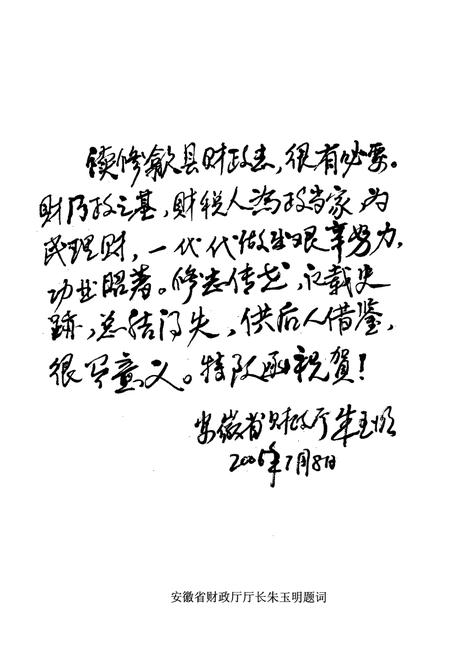 续修歙县财政志，很有必要。
财乃政之基，财税人为政当家，为
民理财，一代代做出艰辛努力，
功业昭著。修志传世，记载史
跡，总结得失，供后人借鉴，
很有意义。特致函祝贺！
安徽省财政厅 朱玉明
2006年7月8日
安徽省财政厅厅长朱玉明题词